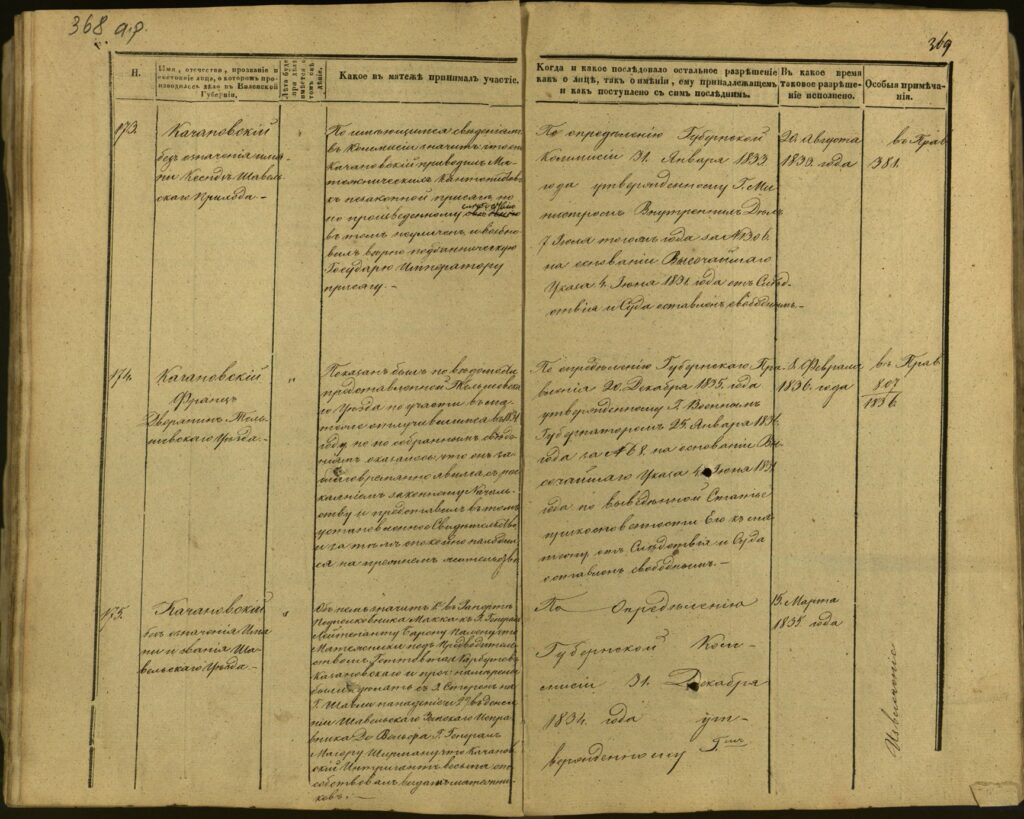 368 а.р.
369
Н.
Имя, отчество, прозваніе и
состояніе лица, о которомъ про-
изводилось дѣло въ Виленской
Губерніи.
Какое въ мятежѣ принималъ участіе.
Когда и какое послѣдовало остальное разрѣшеніе
какъ о лицѣ, такъ о имѣніи, ему принадлежащемъ
и какъ поступлено съ симъ послѣднимъ.
Въ какое время
таковое разрѣше-
ніе исполнено.
Особыя примѣча-
нія.
173.
Качановскій
безъ означенія име-
ни Ксендзъ Шавель-
скаго Прихода –
По имѣющимся свѣдѣніямъ
въ Коммисіи значитъ что онъ
Качановскій приводилъ Мя-
тежническихъ Кантонистовъ
къ незаконной присягѣ, но
по произведенному слѣдствію
въ томъ неуличенъ и возобно-
вилъ вѣрно подданническую
Государю Императору
присягу. –
По опредѣленію Губернской
Коммисіи 31. Января 1833.
года утвержденному Г. Ми-
нистромъ Внутреннихъ Дѣлъ
7 Іюня тогожъ года за №1306.
на основаніи Высочайшаго
Указа 4. Іюня 1831. года отъ Слѣд-
ствія и Суда оставленъ свободнымъ. –
20. Августа
1833. года
въ Прав
381.
174.
Качановскій
Францъ
Дворянинъ Тель-
шевскаго Уѣзда. –
"
Показанъ былъ по вѣдомости
представленной Тельшевска-
го Уѣзда по участи въ мя-
году, но по собраннымъ свѣдѣ-
ніямъ оказалось, что онъ за-
благовременно явился съ рас-
каяніемъ законному Началь-
ству и представилъ въ томъ
установленное Свидѣтельство
и за тѣмъ спокойно находил-
ся на прежнемъ жительствѣ
По опредѣленію Губернскаго Пра-
вленія 20. Декабря 1835. года
утвержденному Г. Военнымъ
Губернаторомъ 25. Января 1836.
года за № 68. на основаніи Вы-
сочайшаго Указа 4. Іюня 1831
года по выведенной Статьѣ
прикосновенности Его къ мя-
тежу отъ Слѣдствія и Суда
оставленъ свободнымъ. –
8. Февраля
1836. года
въ Прав
807
1836.
175.
Качановскій
безъ означенія Име-
ни и званія Ша-
вельскаго Уѣзда –
"
Объ немъ значитъ въ Рапортѣ
Подполковника Макка къ Г. Генералъ
Лейтенанту Барону Палену что
Мятежники подъ Предводитель-
ствомъ
Казановскаго и проч. намѣрены
были сдѣлать съ 3. Сторонъ на
Г. Шавли нападеніе и въ донесе-
ніи Шавельскаго Земскаго Исправ-
ника Г. Генералъ
Маіору Ширману что Качанов-
скій Интригантъ весьма спо-
собствовалъ мятежни-
ковъ. –
По Опредѣленію
Губернской Ком-
мисіи 31. Декабря
1834. года ут-
вержденному Г.
15. Марта
1835. года